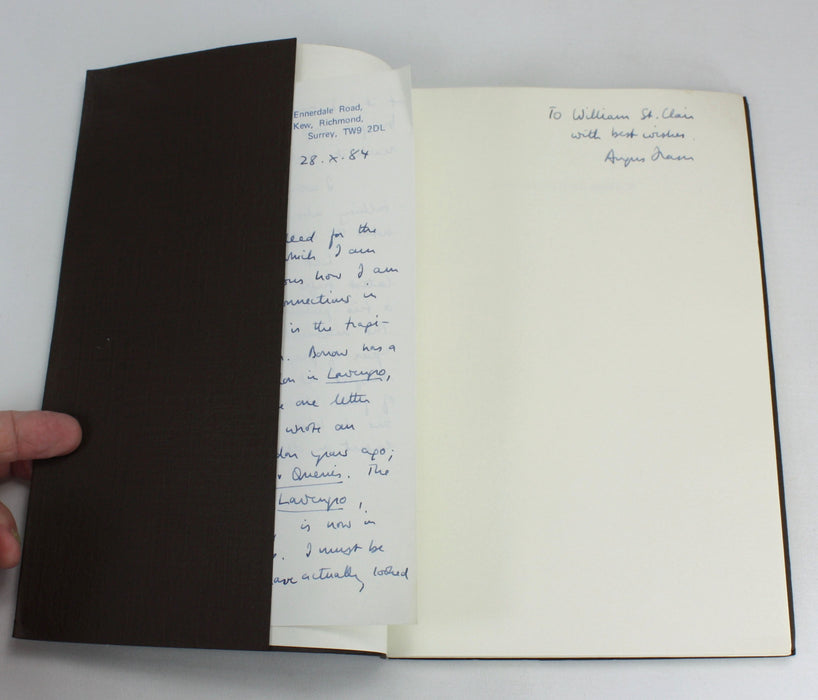 Ennerdale Road,
Kew, Richmond,
Surrey, TW9 2DL
28.x.84
for the
which I am
how I am
in
is the tragi-
Borrow has a
in Lavengro,
one letter
wrote an
years ago;
Queries. The
Lavengro,
is now in
I must be
actually looked
To William St. Clair
with best wishes.
Angus Fraser